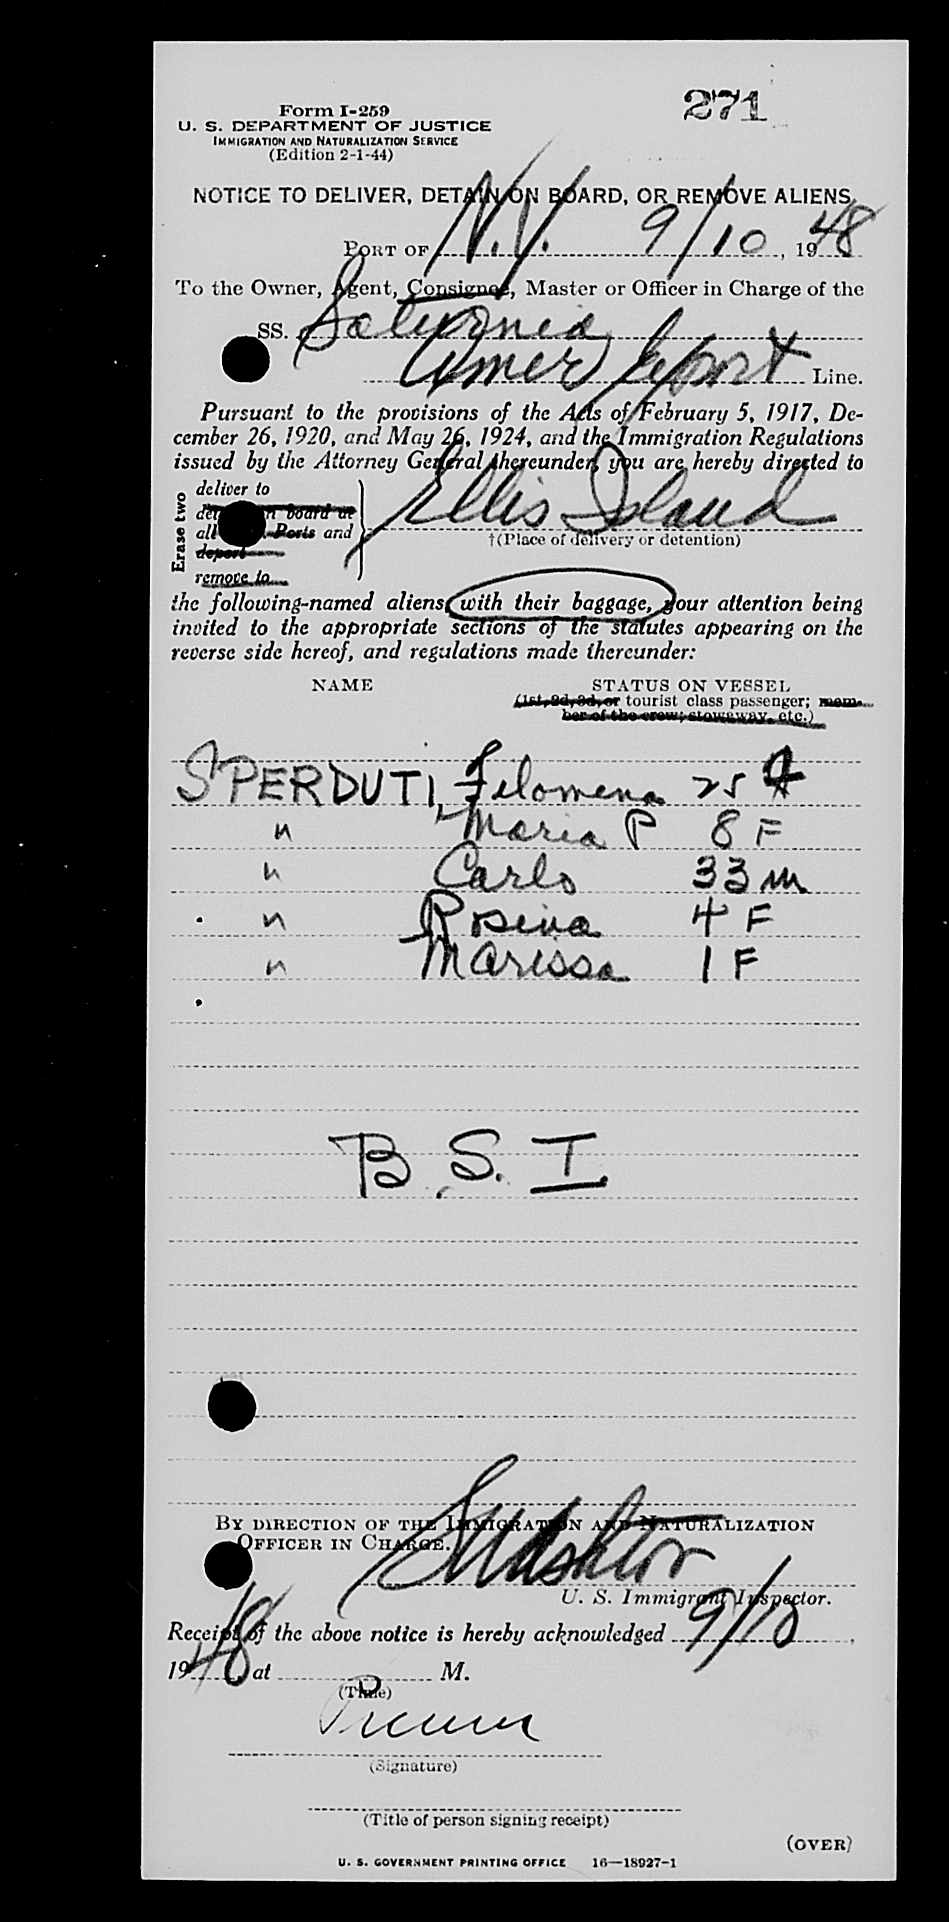 271
Form I-259
U. S. DEPARTMENT OF JUSTICE
IMMIGRATION AND NATURALIZATION SERVICE
(Edition 2-1-44)
NOTICE TO DELIVER, DETAIN ON BOARD, OR REMOVE ALIENS
PORT OF N.Y. 9/10, 1948
To the Owner, Agent, Consignee, Master or Officer in Charge of the
SS. Saturnia
Amer Export Line.
Pursuant to the provisions of the Acts of February 5, 1917, De-
cember 26, 1920, and May 26, 1924, and the Immigration Regulations
issued by the Attorney General thereunder, you are hereby directed to
Erase two
deliver to
on board at
all Ports and
deport
remove to
Ellis Island
†(Place of delivery or detention)
the following-named aliens, with their baggage, your attention being
invited to the appropriate sections of the statutes appearing on the
reverse side hereof, and regulations made thereunder:
NAME STATUS ON VESSEL
(1st, 2d, 3d, or tourist class passenger; mem-
ber of the crew; stowaway, etc.)
SPERDUTI, Filomena 25 F
" Maria P 8 F
" Carlo 33 m
" Rosina 4 F
" Marissa 1 F
B. S. I.
BY DIRECTION OF THE IMMIGRATION AND NATURALIZATION
OFFICER IN CHARGE.
U. S. Immigrant Inspector.
Receipt of the above notice is hereby acknowledged 9/10,
1948 at M.
(Time)
(Signature)
(Title of person signing receipt)
(OVER)
U. S. GOVERNMENT PRINTING OFFICE 16—18927-1